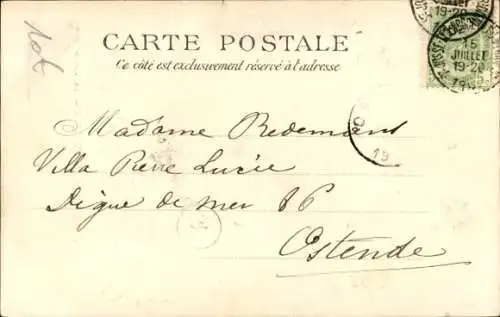 CARTE POSTALE
Ce côté est exclusivement réservé à l'adresse
15
JUILLET
19-20
Madame Redemans
Villa Pierre Lucie
Digue de mer 86
Ostende